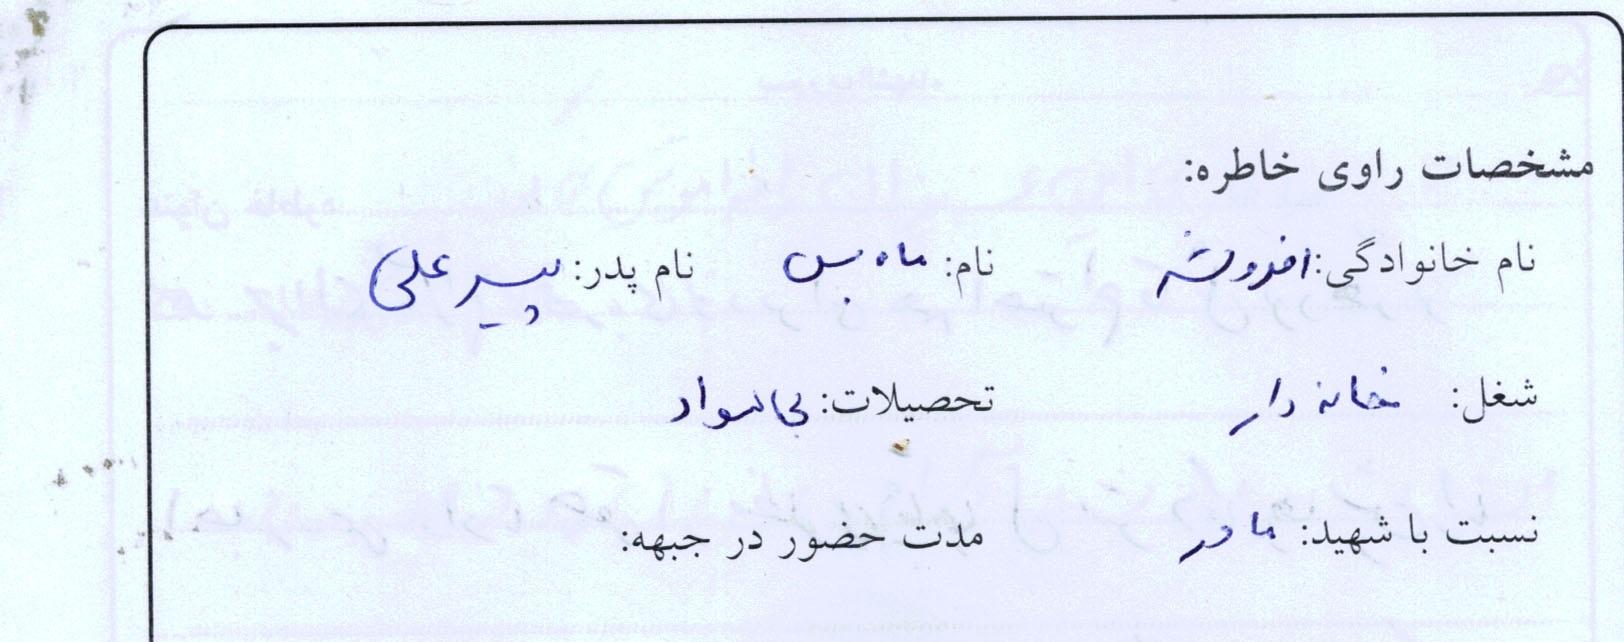 مشخصات راوی خاطره:
نام خانوادگی: افروشه نام: ماه بس نام پدر: پیر علی
شغل: خانه دار تحصیلات: بی سواد
نسبت با شهید: مادر مدت حضور در جبهه: